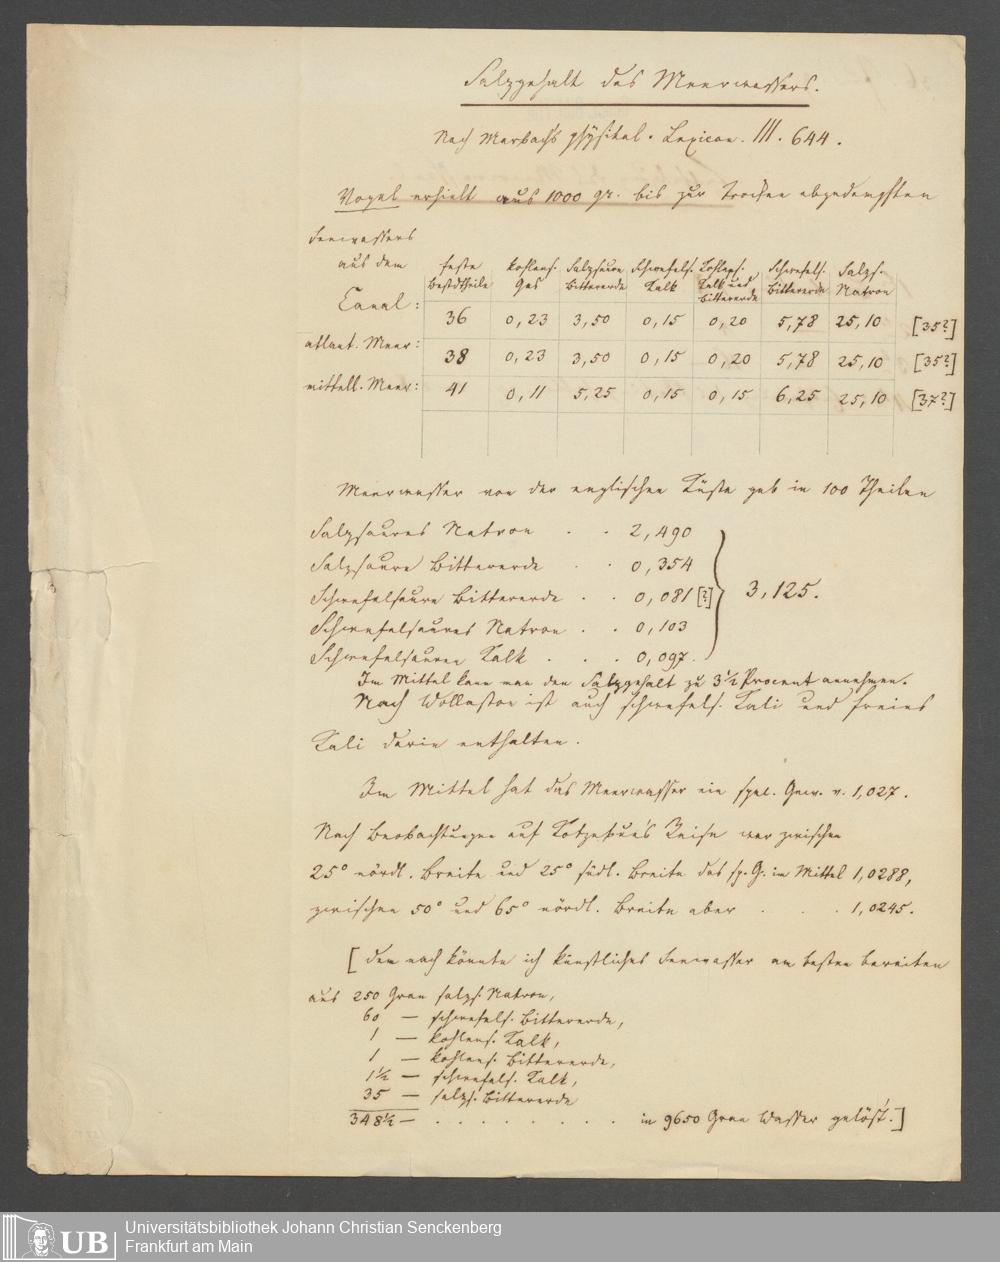 Salzgehalt des Meerwassers.
Nach Marbach's physikal. Lexicon. III. 644.
Vogel erhielt aus 1000 gr. bis zur Trockne abgedampften
Seewassers
aus dem | feste Bestdtheile | kohlens. Gas | Salzsaure Bittererde | Schwefels. Kalk | Kohlens. Kalk und Bittererde | Schwefels. Bittererde | Salzs. Natron
Canal: 36 | 0,23 | 3,50 | 0,15 | 0,20 | 5,78 | 25,10 [35?]
atlant. Meer: 38 | 0,23 | 3,50 | 0,15 | 0,20 | 5,78 | 25,10 [35?]
mittell. Meer: 41 | 0,11 | 5,25 | 0,15 | 0,15 | 6,25 | 25,10 [37?]
Meerwasser von der englischen Küste gab in 100 Theilen
Salzsaures Natron . . 2,490
Salzsaure Bittererde . . 0,354
Schwefelsaure Bittererde . . 0,081 [?] } 3,125.
Schwefelsaures Natron . . 0,103
Schwefelsauren Kalk . . . 0,097.
Im Mittel kann man den Salzgehalt zu 3½ Procent annehmen.
Nach Wollaston ist auch schwefels. Kali und freies
Kali darin enthalten.
Im Mittel hat das Meerwasser ein spec. Gew. v. 1,027.
Nach Beobachtungen auf Kotzebue's Reise war zwischen
25° nördl. Breite und 25° südl. Breite das sp. G. im Mittel 1,0288,
zwischen 50° und 65° nördl. Breite aber . . . 1,0245.
[Demnach könnte ich künstliches Seewasser am besten bereiten
aus 250 Gran salzs. Natron,
60 — schwefels. Bittererde,
1 — kohlens. Kalk,
1 — kohlens. Bittererde,
1½ — schwefels. Kalk,
35 — salzs. Bittererde
348½ — . . . . . . . . in 9650 Gran Wasser gelöst.]
UB
Universitätsbibliothek Johann Christian Senckenberg
Frankfurt am Main